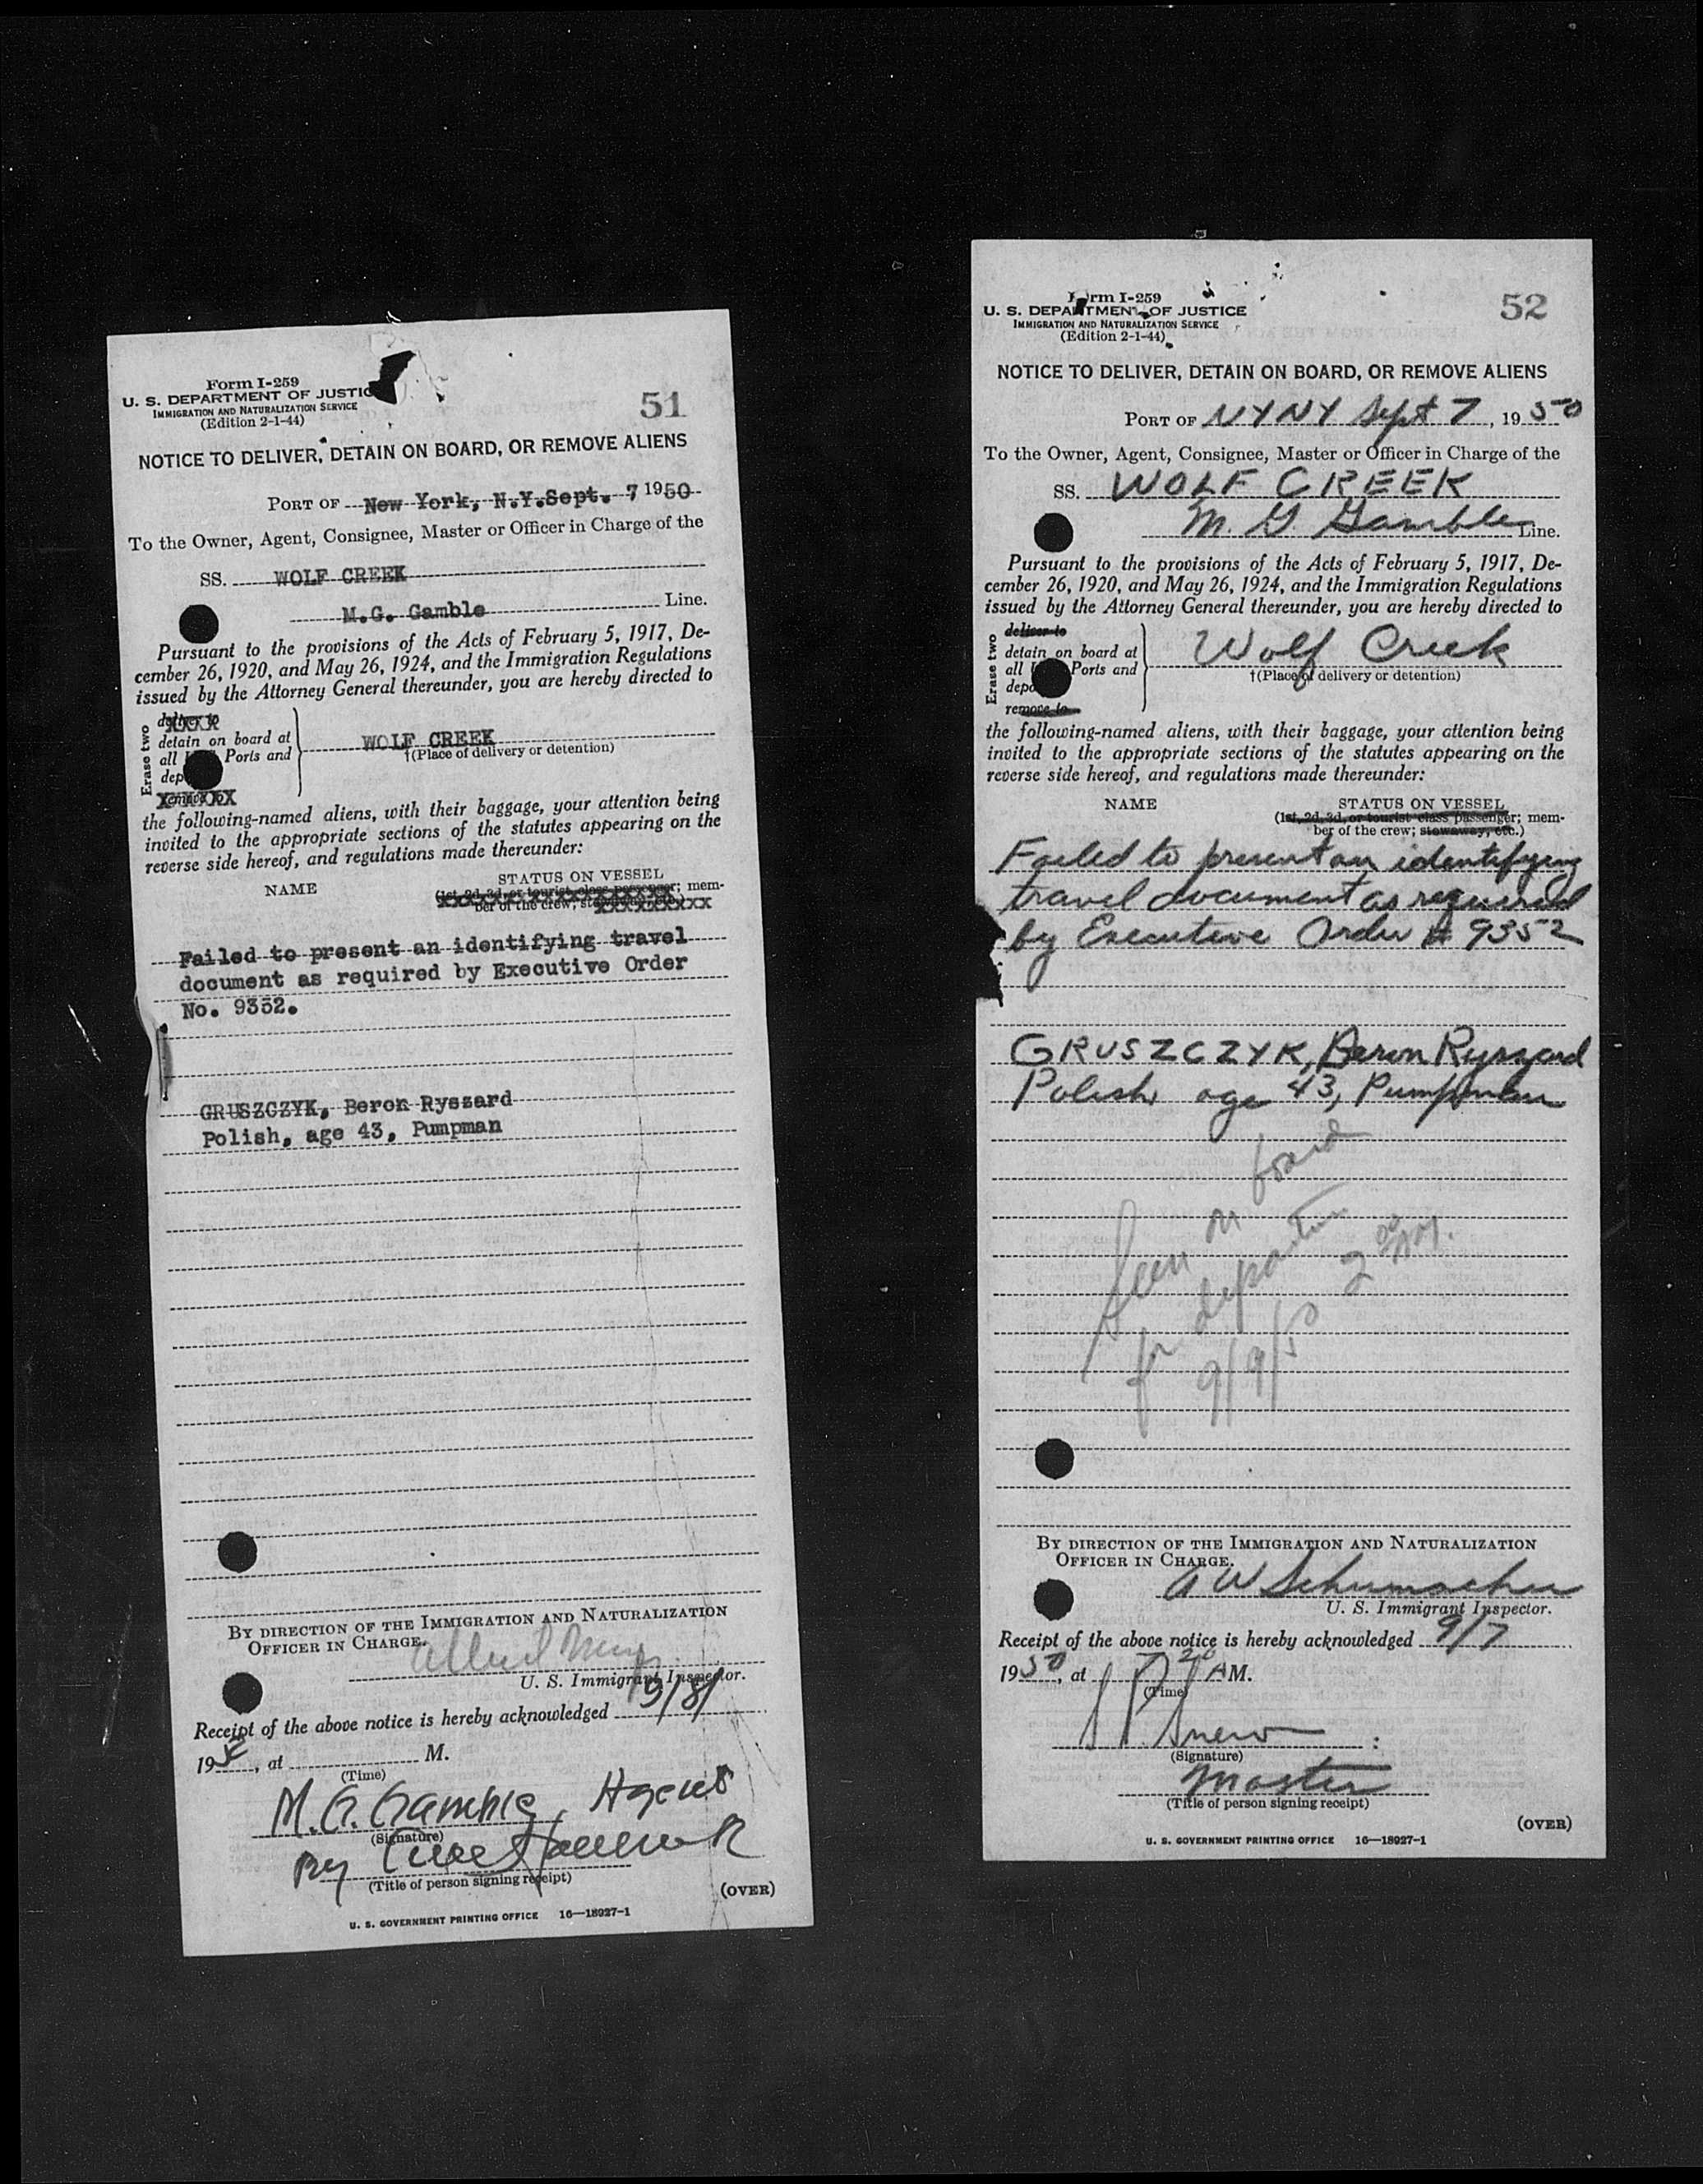 Form I-259
U. S. DEPARTMENT OF JUSTIC
IMMIGRATION AND NATURALIZATION SERVICE
(Edition 2-1-44)
51
NOTICE TO DELIVER, DETAIN ON BOARD, OR REMOVE ALIENS
PORT OF New York, N.Y. Sept. 7 1950
To the Owner, Agent, Consignee, Master or Officer in Charge of the
SS. WOLF CREEK
M.G. Gamble Line.
Pursuant to the provisions of the Acts of February 5, 1917, De-
cember 26, 1920, and May 26, 1924, and the Immigration Regulations
issued by the Attorney General thereunder, you are hereby directed to
Erase two
deliver to
detain on board at
all Ports and
dep
remove to
WOLF CREEK
†(Place of delivery or detention)
the following-named aliens, with their baggage, your attention being
invited to the appropriate sections of the statutes appearing on the
reverse side hereof, and regulations made thereunder:
NAME STATUS ON VESSEL
(1st, 2d, 3d, or tourist class passenger; mem-
ber of the crew; stowaway, etc.)
Failed to present an identifying travel
document as required by Executive Order
No. 9352.
GRUSZCZYK, Beron Ryszard
Polish, age 43, Pumpman
BY DIRECTION OF THE IMMIGRATION AND NATURALIZATION
OFFICER IN CHARGE.
U. S. Immigrant Inspector.
Receipt of the above notice is hereby acknowledged 9/8/
19 , at M.
(Time)
M. G. Gamble, Agent
(Signature)
By
(Title of person signing receipt)
(OVER)
U. S. GOVERNMENT PRINTING OFFICE 16—18927-1
Form I-259
U. S. DEPARTMENT OF JUSTICE
IMMIGRATION AND NATURALIZATION SERVICE
(Edition 2-1-44)
52
NOTICE TO DELIVER, DETAIN ON BOARD, OR REMOVE ALIENS
PORT OF NY NY Sept 7, 1950
To the Owner, Agent, Consignee, Master or Officer in Charge of the
SS. WOLF CREEK
M. G. Gamble Line.
Pursuant to the provisions of the Acts of February 5, 1917, De-
cember 26, 1920, and May 26, 1924, and the Immigration Regulations
issued by the Attorney General thereunder, you are hereby directed to
Erase two
deliver to
detain on board at
all Ports and
depo
remove to
Wolf Creek
†(Place of delivery or detention)
the following-named aliens, with their baggage, your attention being
invited to the appropriate sections of the statutes appearing on the
reverse side hereof, and regulations made thereunder:
NAME STATUS ON VESSEL
(1st, 2d, 3d, or tourist class passenger; mem-
ber of the crew; stowaway, etc.)
Failed to present an identifying
travel document as required
by Executive Order # 9352
GRUSZCZYK, Beron Ryszard
Polish age 43, Pumpman
Seen on board
for departure
9/9/50 2 00 PM.
BY DIRECTION OF THE IMMIGRATION AND NATURALIZATION
OFFICER IN CHARGE.
A W Schumacher
U. S. Immigrant Inspector.
Receipt of the above notice is hereby acknowledged 9/7
1950, at 7 20 AM.
(Time)
(Signature)
Master
(Title of person signing receipt)
(OVER)
U. S. GOVERNMENT PRINTING OFFICE 16—18927-1